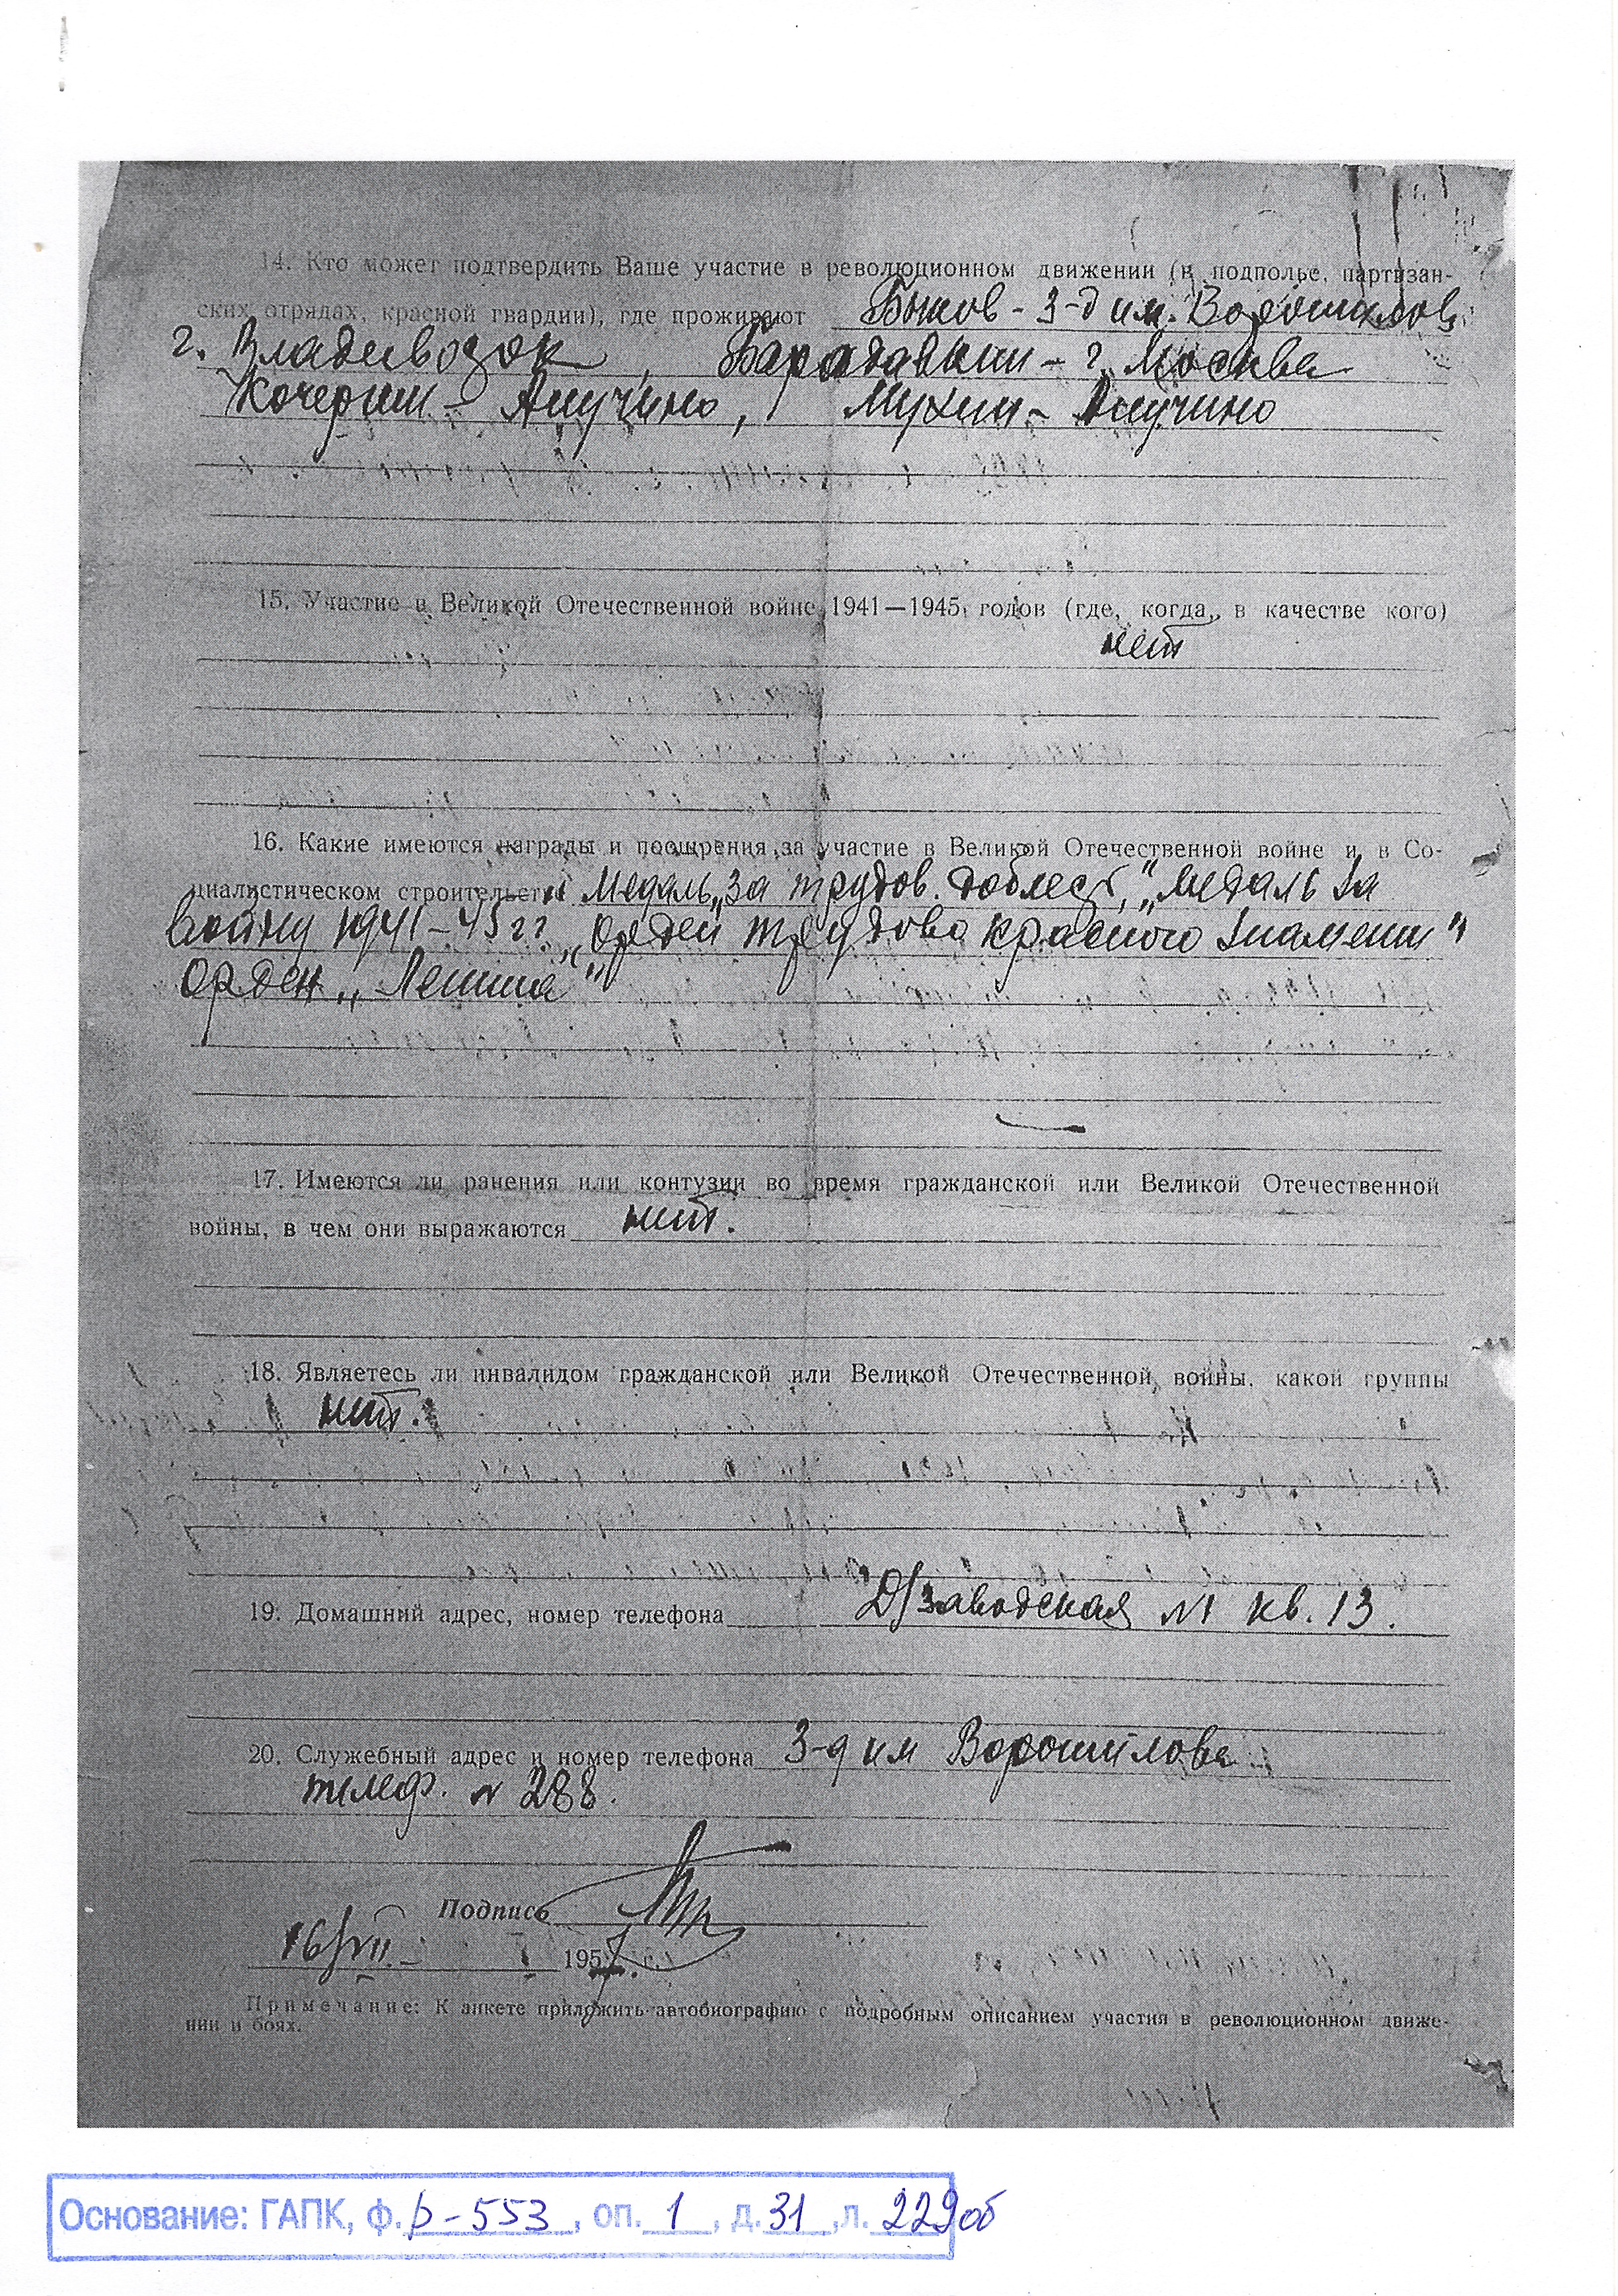 14. Кто может подтвердить Ваше участие в революционном движении (в подполье, партизан-
ских отрядах, красной гвардии), где проживают Быков - З-д им. Ворошилова,
г. Владивосток, - г. Москва
Кочергин - Анучино, Мухин - Анучино
15. Участие в Великой Отечественной войне 1941—1945 годов (где, когда, в качестве кого)
нет
16. Какие имеются награды и поощрения за участие в Великой Отечественной войне и в Со-
циалистическом строительстве Медаль „За трудов. доблесть", „Медаль За
войну 1941-45 гг. „Орден трудово красного Знамени"
Орден „Ленина"
17. Имеются ли ранения или контузии во время гражданской или Великой Отечественной
войны, в чем они выражаются нет.
18. Являетесь ли инвалидом гражданской или Великой Отечественной войны, какой группы
нет.
19. Домашний адрес, номер телефона Д/заводская №1 кв. 13.
20. Служебный адрес и номер телефона З-д им Ворошилова
телеф. № 288.
Подпись
16/VII - 1957 г.
Примечание: К анкете приложить автобиографию с подробным описанием участия в революционном движе-
нии и боях.
Основание: ГАПК, ф. р-553, оп. 1, д. 31, л. 229об